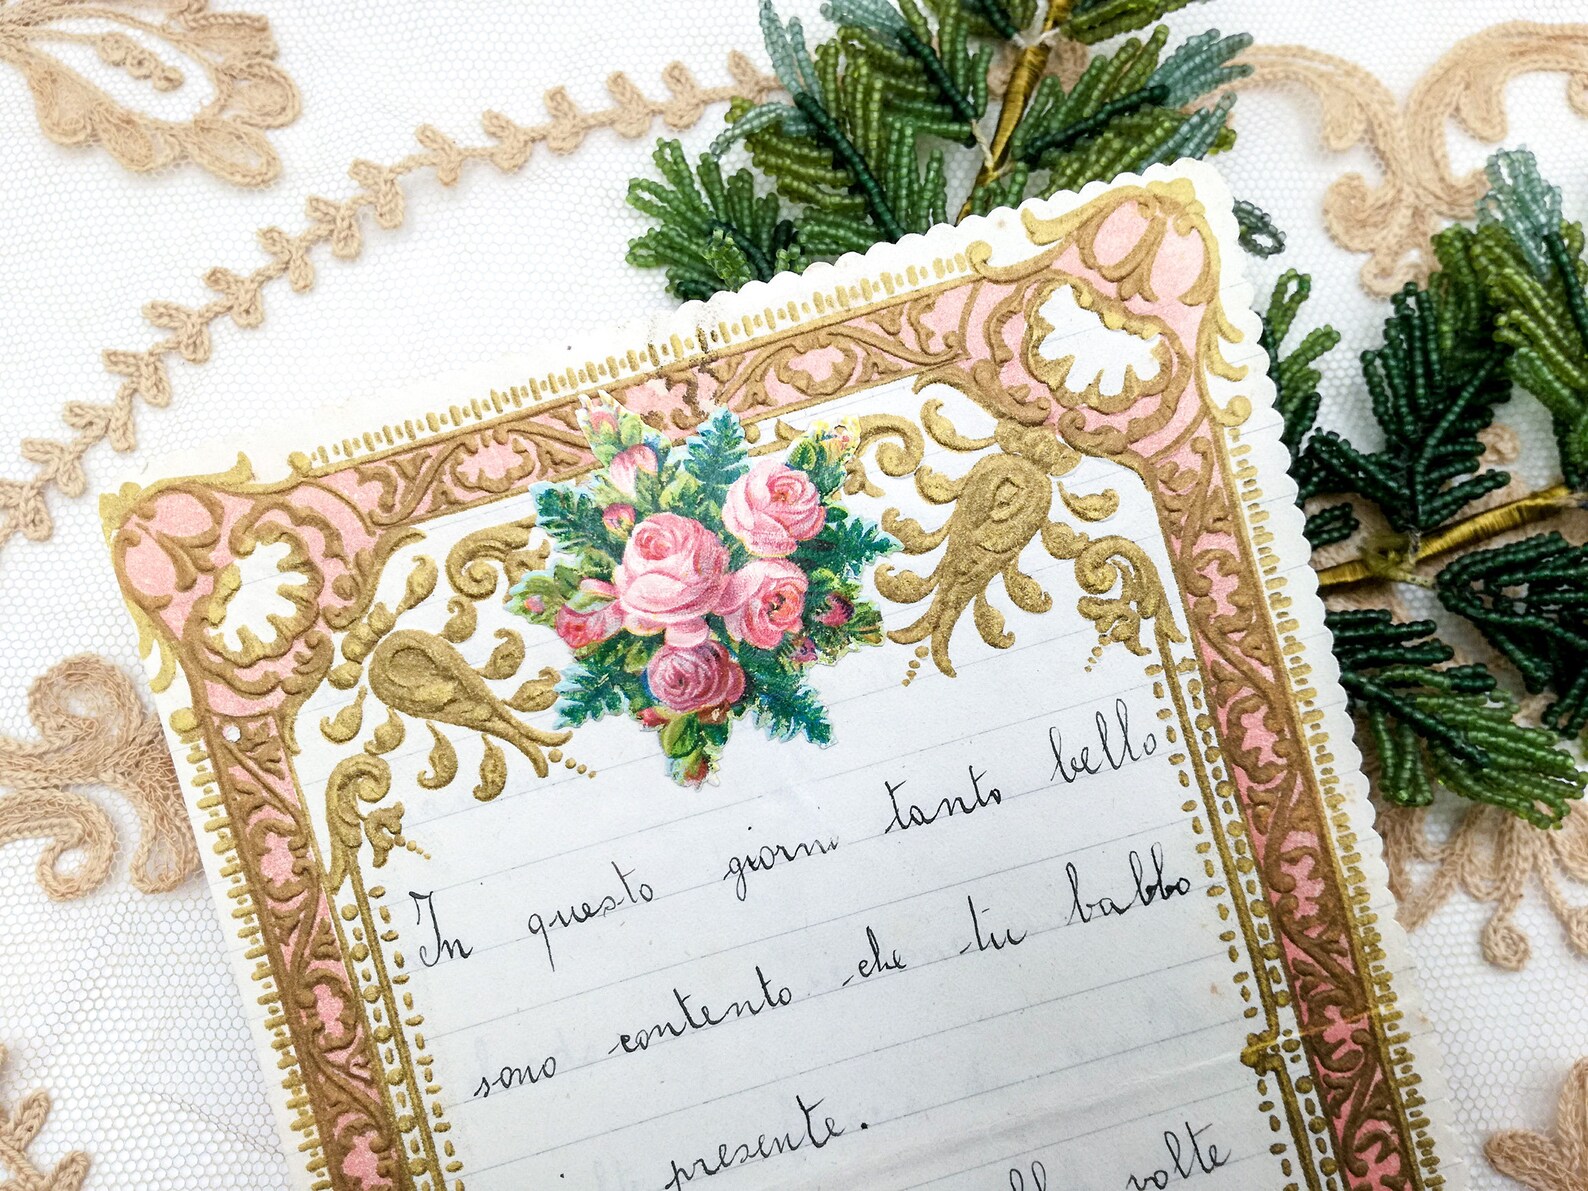 In questo giorni tanto bello
sono contento che tu babbo
presente.
volte